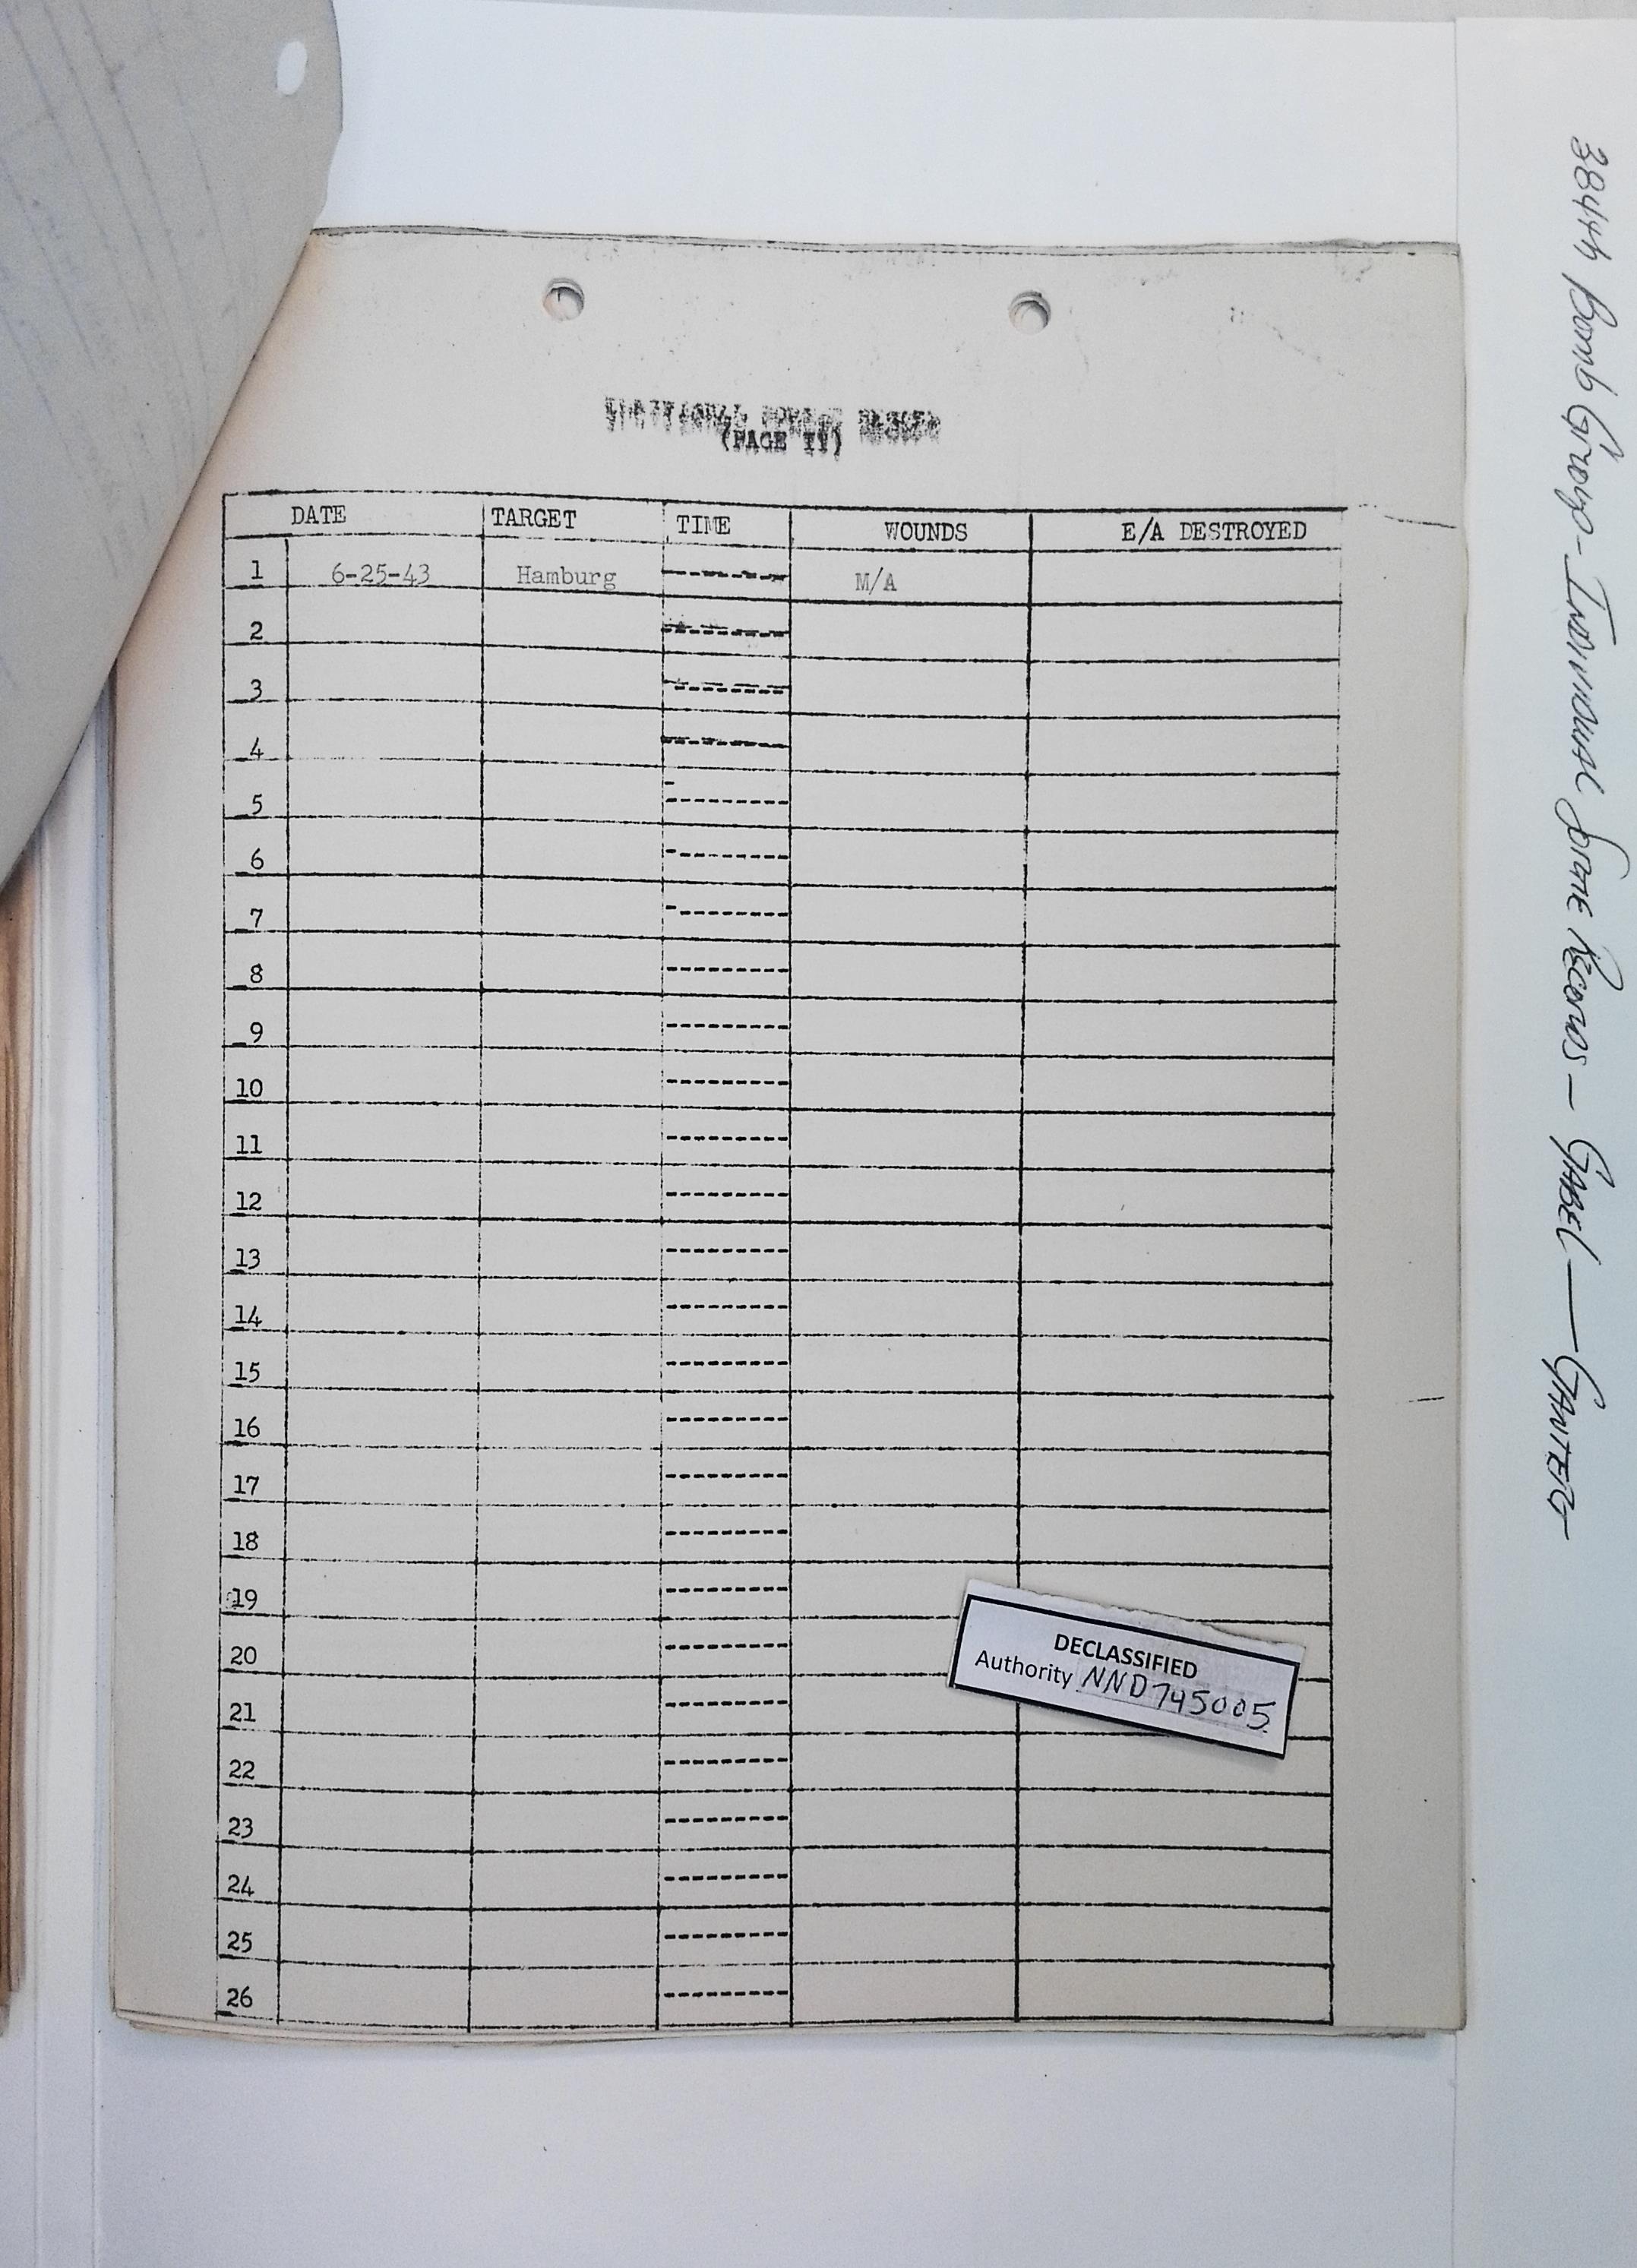 (PAGE II)
DATE TARGET TIME WOUNDS E/A DESTROYED
1 6-25-43 Hamburg M/A
2
3
4
5
6
7
8
9
10
11
12
13
14
15
16
17
18
19
20
21
22
23
24
25
26
DECLASSIFIED
Authority NND745005
384th Bomb Group - Individual Sortie Records - GABEL — GANTER